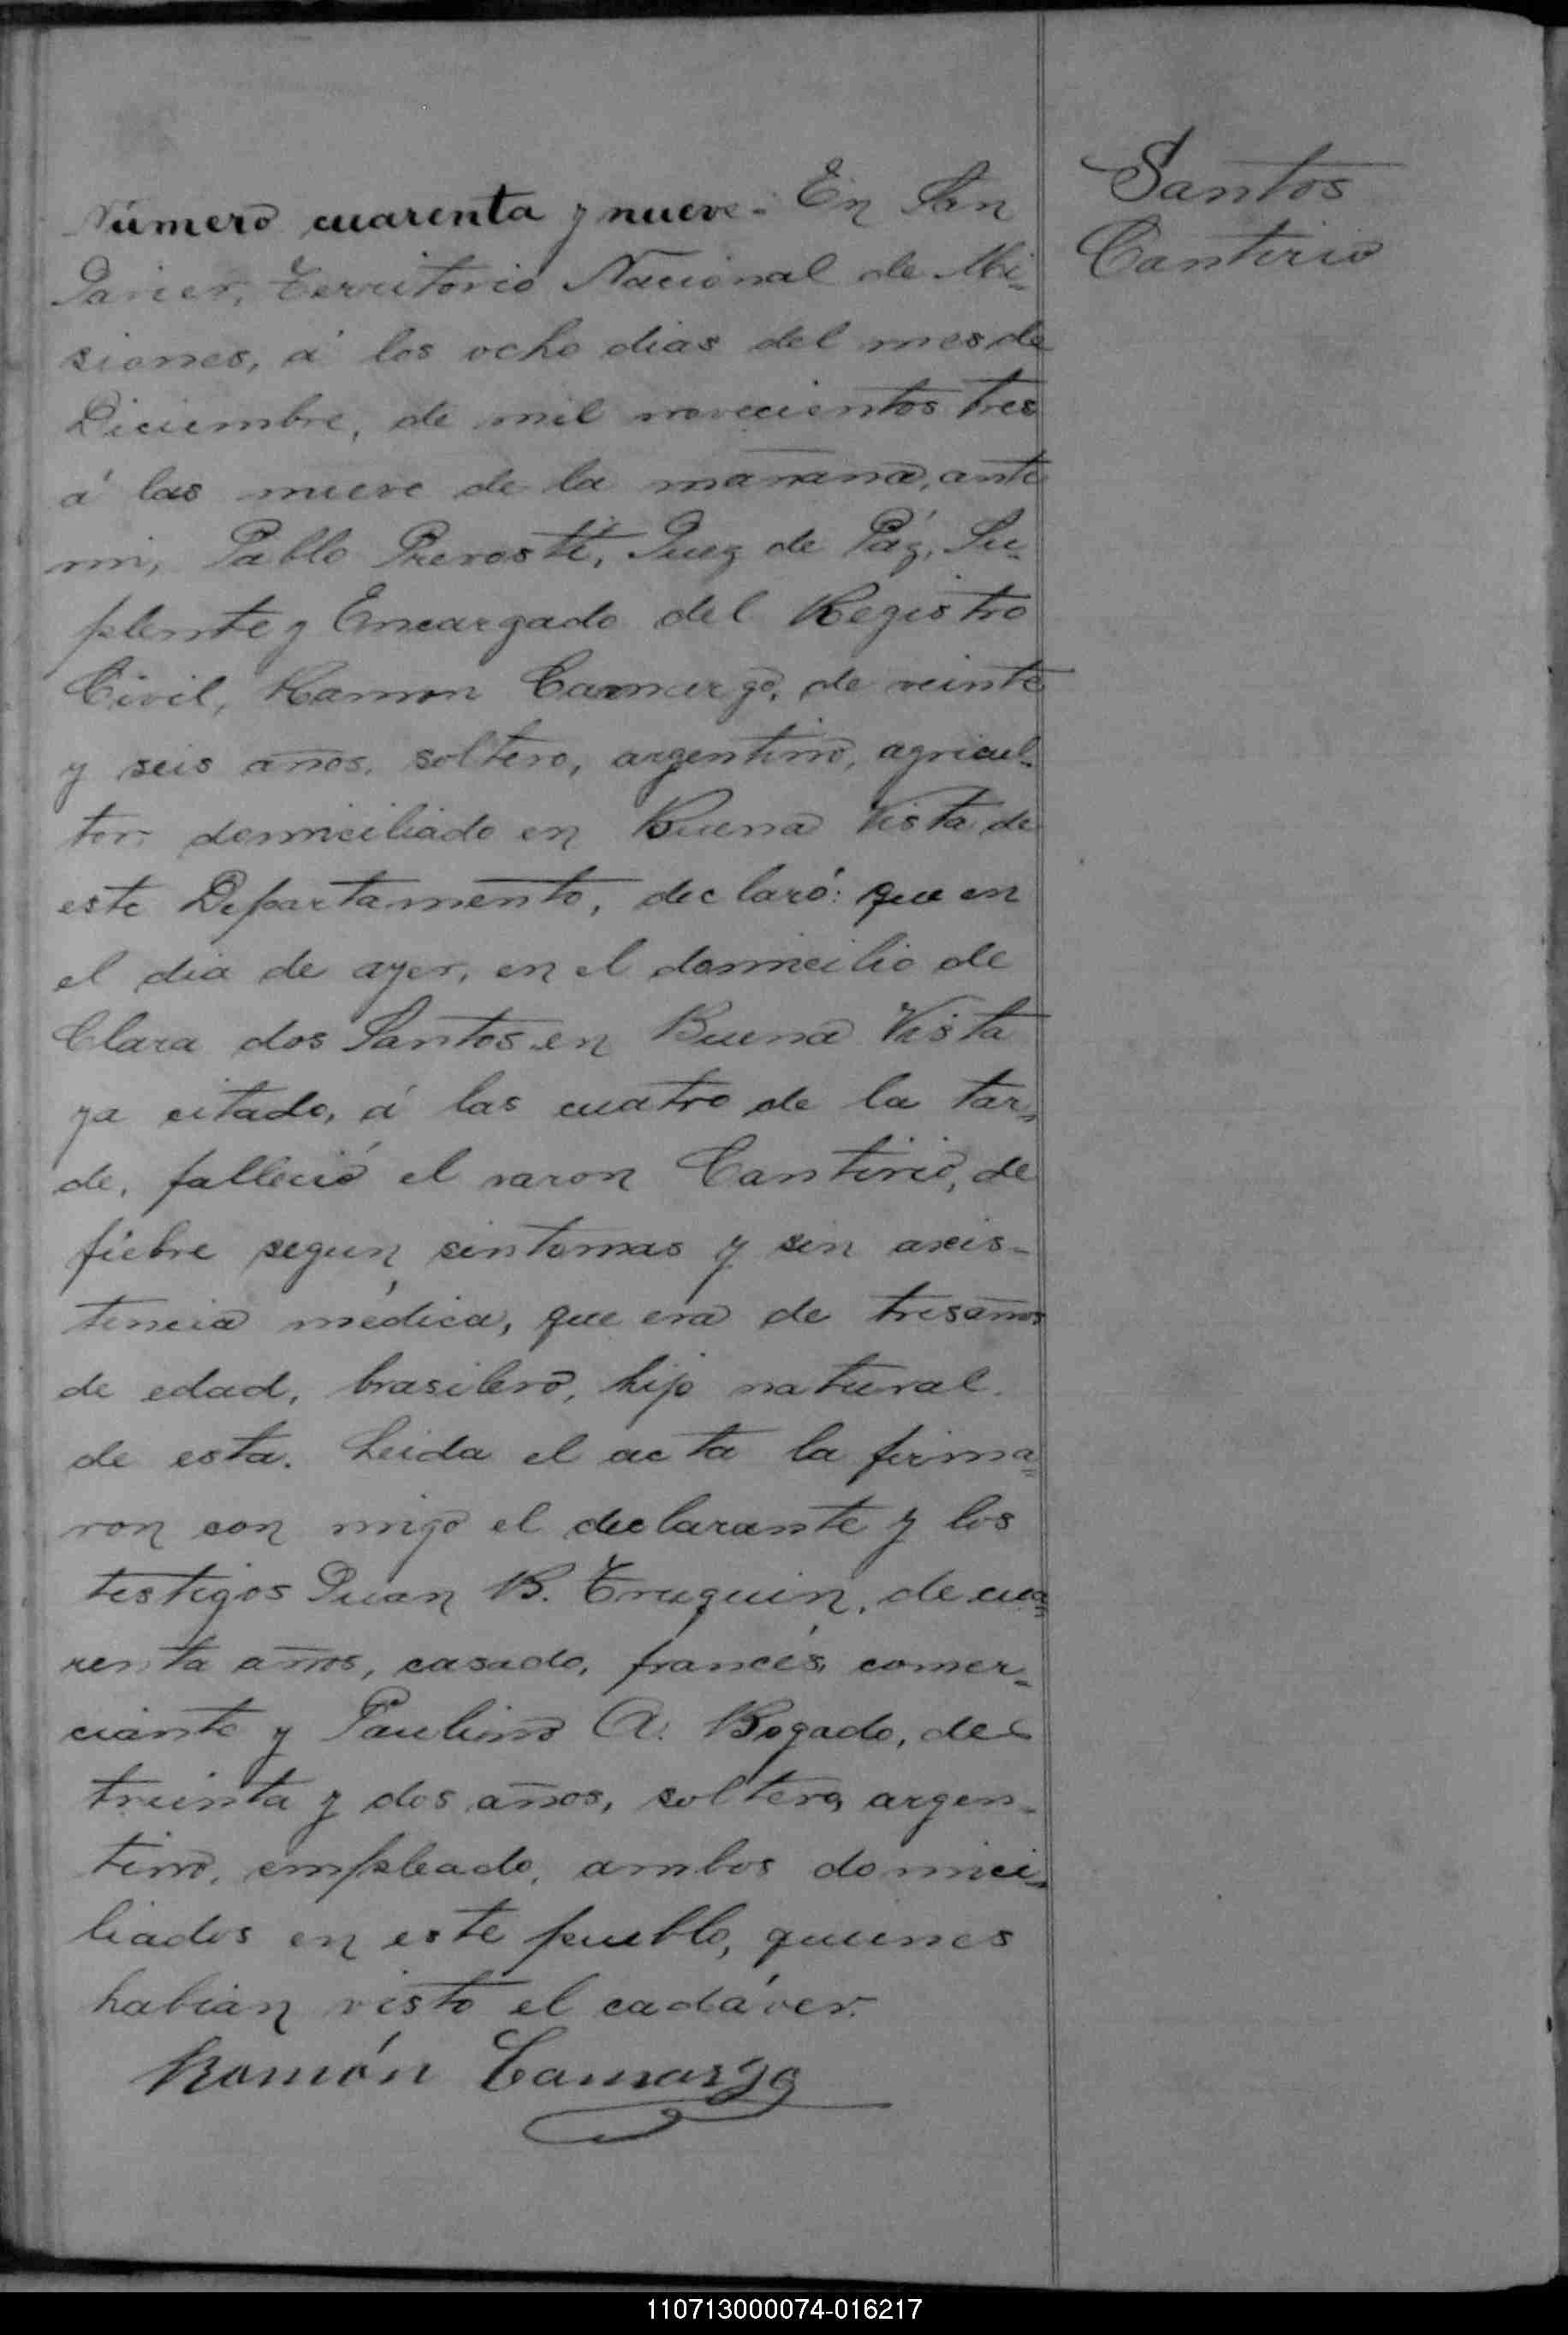 Número cuarenta y nueve.- En San
Javier, Territorio Nacional de Mi-
siones, á los ocho dias del mes de
Diciembre, de mil novecientos tres
á las nueve de la mañana, ante
mi, Pablo Prevosti, Juez de Páz, Su-
plente y Encargado del Registro
Civil, Ramon Camargo, de veinte
y seis años, soltero, argentino, agricul-
tor domiciliado en Buena Vista, de
este Departamento, declaró: que en
el dia de ayer, en el domicilio de
Clara dos Santos en Buena Vista
ya citado, á las cuatro de la tar-
de, falleció el varon Cantirio, de
fiebre segun sintomas y sin asis-
tencia médica, que era de tres años
de edad, brasilero, hijo natural
de esta. Leida el acta la firma=
ron con migo el declarante y los
testigos Juan B. Truguin, de cua=
renta años, casado, francés, comer-
ciante y Paulino A. Bogado, de
treinta y dos años, soltero, argen-
tino, empleado, ambos domici-
liados en este pueblo, quienes
habian visto el cadáver.
Ramón Camargo
Santos
Cantirio
110713000074-016217